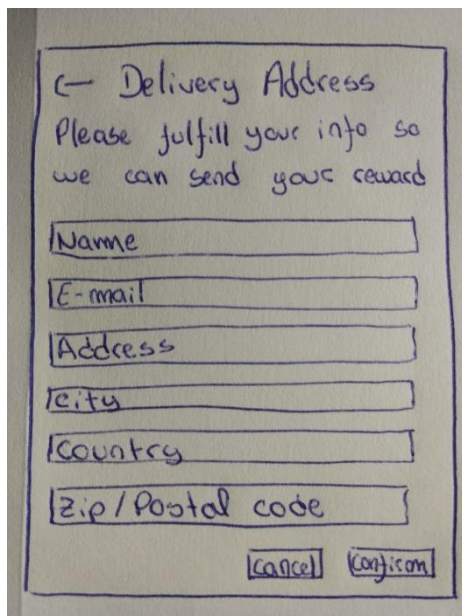 ← Delivery Address
Please fulfill your info so
we can send your reward
Name
E-mail
Address
City
Country
Zip/Postal code
Cancel Confirm